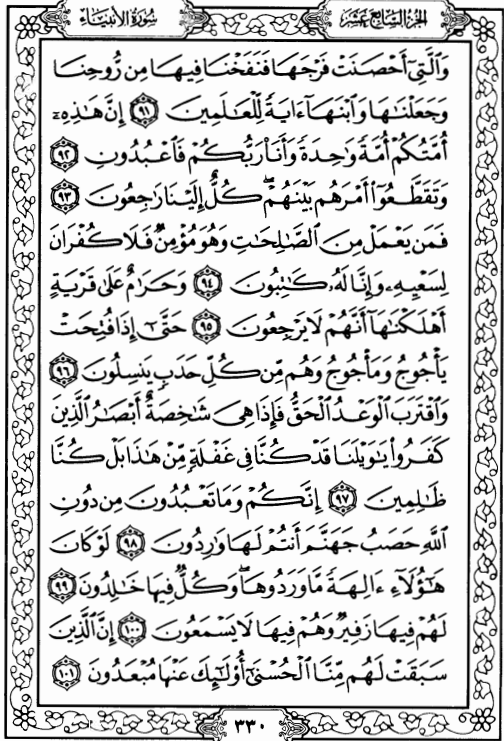 سُورَةُ الأَنبِيَاء
الجُزءُ السَّابِعَ عَشَرَ
وَٱلَّتِىٓ أَحْصَنَتْ فَرْجَهَا فَنَفَخْنَا فِيهَا مِن رُّوحِنَا
وَجَعَلْنَٰهَا وَٱبْنَهَآ ءَايَةً لِّلْعَٰلَمِينَ ٩١ إِنَّ هَٰذِهِۦٓ
أُمَّتُكُمْ أُمَّةً وَٰحِدَةً وَأَنَا۠ رَبُّكُمْ فَٱعْبُدُونِ ٩٢
وَتَقَطَّعُوٓا۟ أَمْرَهُم بَيْنَهُمْ ۖ كُلٌّ إِلَيْنَا رَٰجِعُونَ ٩٣
فَمَن يَعْمَلْ مِنَ ٱلصَّٰلِحَٰتِ وَهُوَ مُؤْمِنٌ فَلَا كُفْرَانَ
لِسَعْيِهِۦ وَإِنَّا لَهُۥ كَٰتِبُونَ ٩٤ وَحَرَٰمٌ عَلَىٰ قَرْيَةٍ
أَهْلَكْنَٰهَآ أَنَّهُمْ لَا يَرْجِعُونَ ٩٥ حَتَّىٰٓ إِذَا فُتِحَتْ
يَأْجُوجُ وَمَأْجُوجُ وَهُم مِّن كُلِّ حَدَبٍ يَنسِلُونَ ٩٦
وَٱقْتَرَبَ ٱلْوَعْدُ ٱلْحَقُّ فَإِذَا هِىَ شَٰخِصَةٌ أَبْصَٰرُ ٱلَّذِينَ
كَفَرُوا۟ يَٰوَيْلَنَا قَدْ كُنَّا فِى غَفْلَةٍ مِّنْ هَٰذَا بَلْ كُنَّا
ظَٰلِمِينَ ٩٧ إِنَّكُمْ وَمَا تَعْبُدُونَ مِن دُونِ
ٱللَّهِ حَصَبُ جَهَنَّمَ أَنتُمْ لَهَا وَٰرِدُونَ ٩٨ لَوْ كَانَ
هَٰٓؤُلَآءِ ءَالِهَةً مَّا وَرَدُوهَا ۖ وَكُلٌّ فِيهَا خَٰلِدُونَ ٩٩
لَهُمْ فِيهَا زَفِيرٌ وَهُمْ فِيهَا لَا يَسْمَعُونَ ١٠٠ إِنَّ ٱلَّذِينَ
سَبَقَتْ لَهُم مِّنَّا ٱلْحُسْنَىٰٓ أُو۟لَٰٓئِكَ عَنْهَا مُبْعَدُونَ ١٠١
٣٣٠